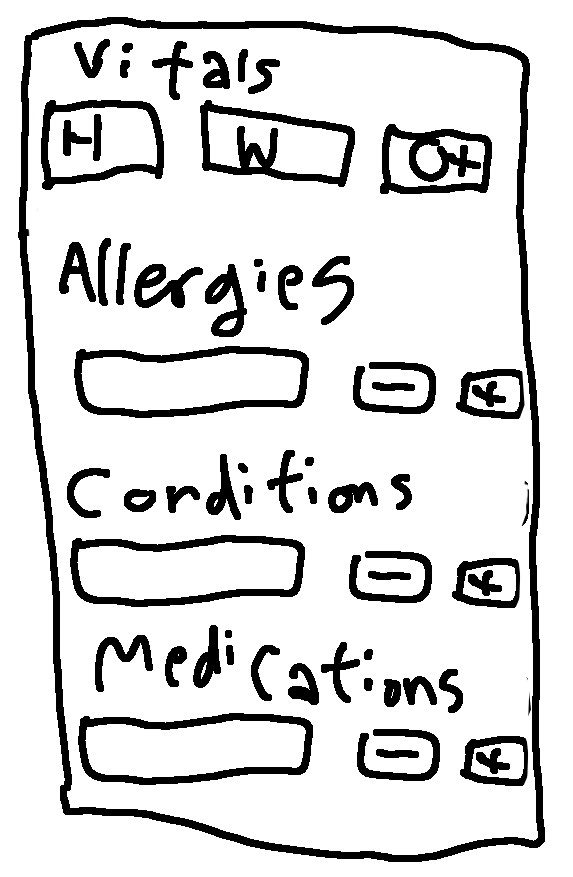 Vitals
H W Ox
Allergies
- +
Conditions
- +
Medications
- +